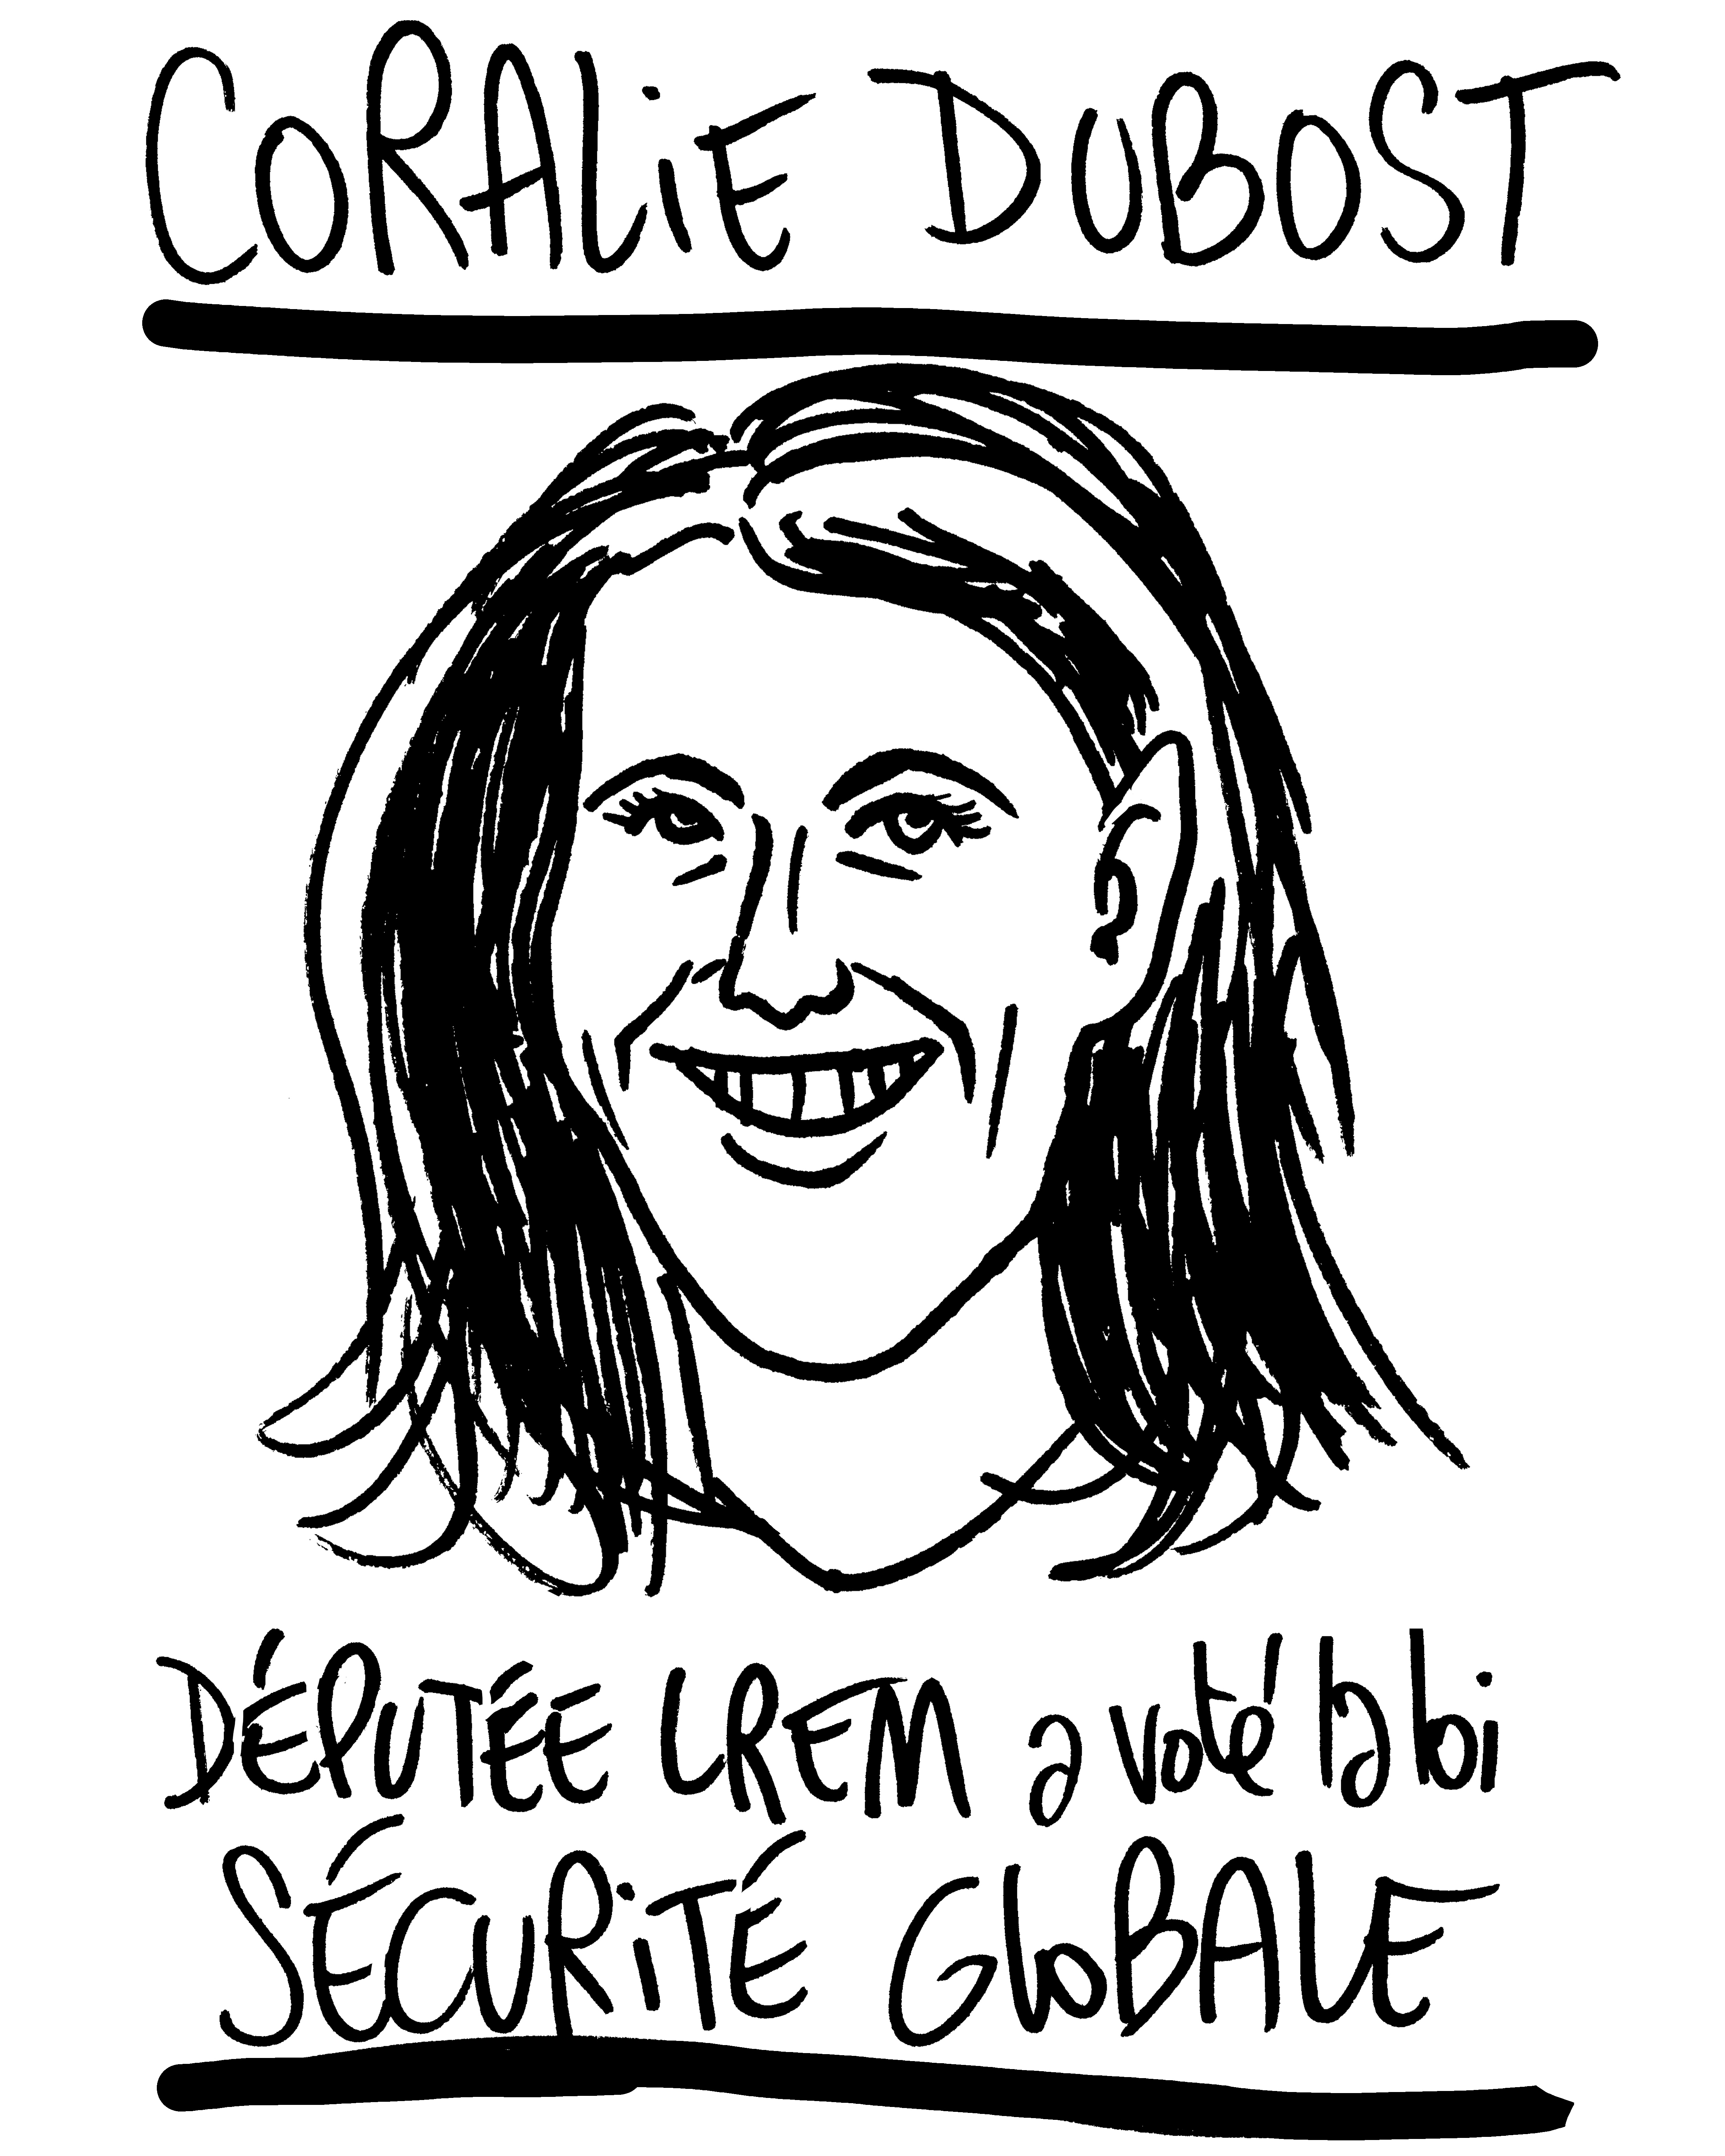 CORALiE DUBOST
DÉPUTÉE LREM a voté la loi
SÉCURiTÉ GLOBALE